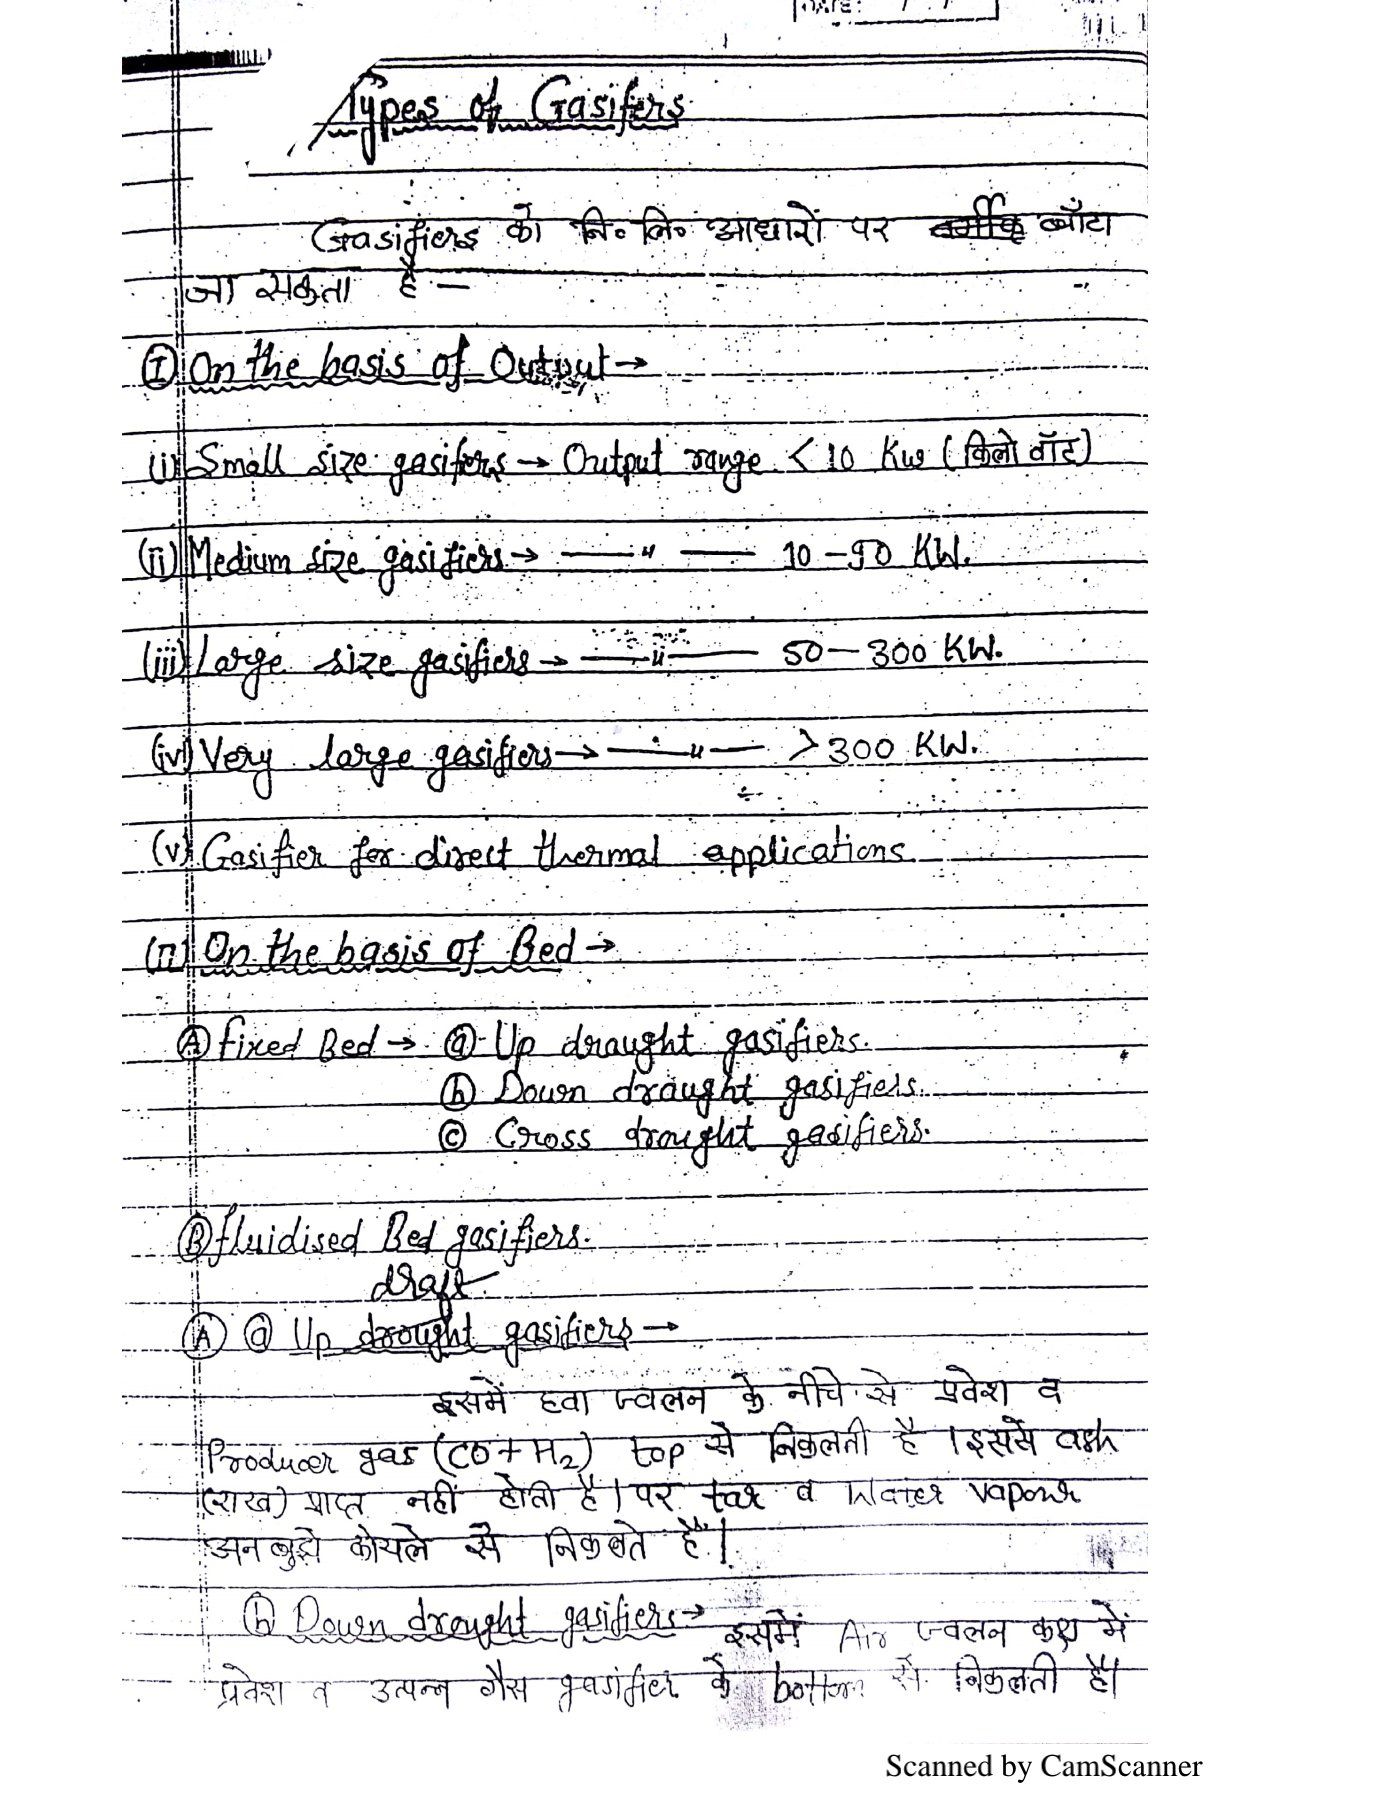 DATE: / /
Types of Gasifers
Gasifiers को नि० लि० आधारों पर बाँटा
जा सकता है —
(I) On the basis of Output →
(i) Small size gasifers → Output range < 10 Kw (किलो वॉट)
(ii) Medium size gasifiers → —— " —— 10 - 50 KW.
(iii) Large size gasifiers → —— " —— 50 — 300 KW.
(iv) Very large gasifiers → —— " —— > 300 KW.
(v) Gasifier for direct thermal applications
(II) On the basis of Bed →
(A) fixed Bed → (a) Up draught gasifiers.
(b) Down draught gasifiers.
(c) Cross drought gasifiers.
(B) fluidised Bed gasifiers.
draft
(A) (a) Up drought gasifiers →
इसमें हवा ज्वलन के नीचे से प्रवेश व
Producer gas (CO + H₂) top से निकलती है । इससे ash
(राख) प्राप्त नहीं होती है । पर tar व Water vapour
अनबुझे कोयले से निकलते हैं ।
(b) Down drought gasifiers → इसमें Air ज्वलन कक्ष में
प्रवेश व उत्पन्न गैस gasifier के bottom से निकलती है।
Scanned by CamScanner